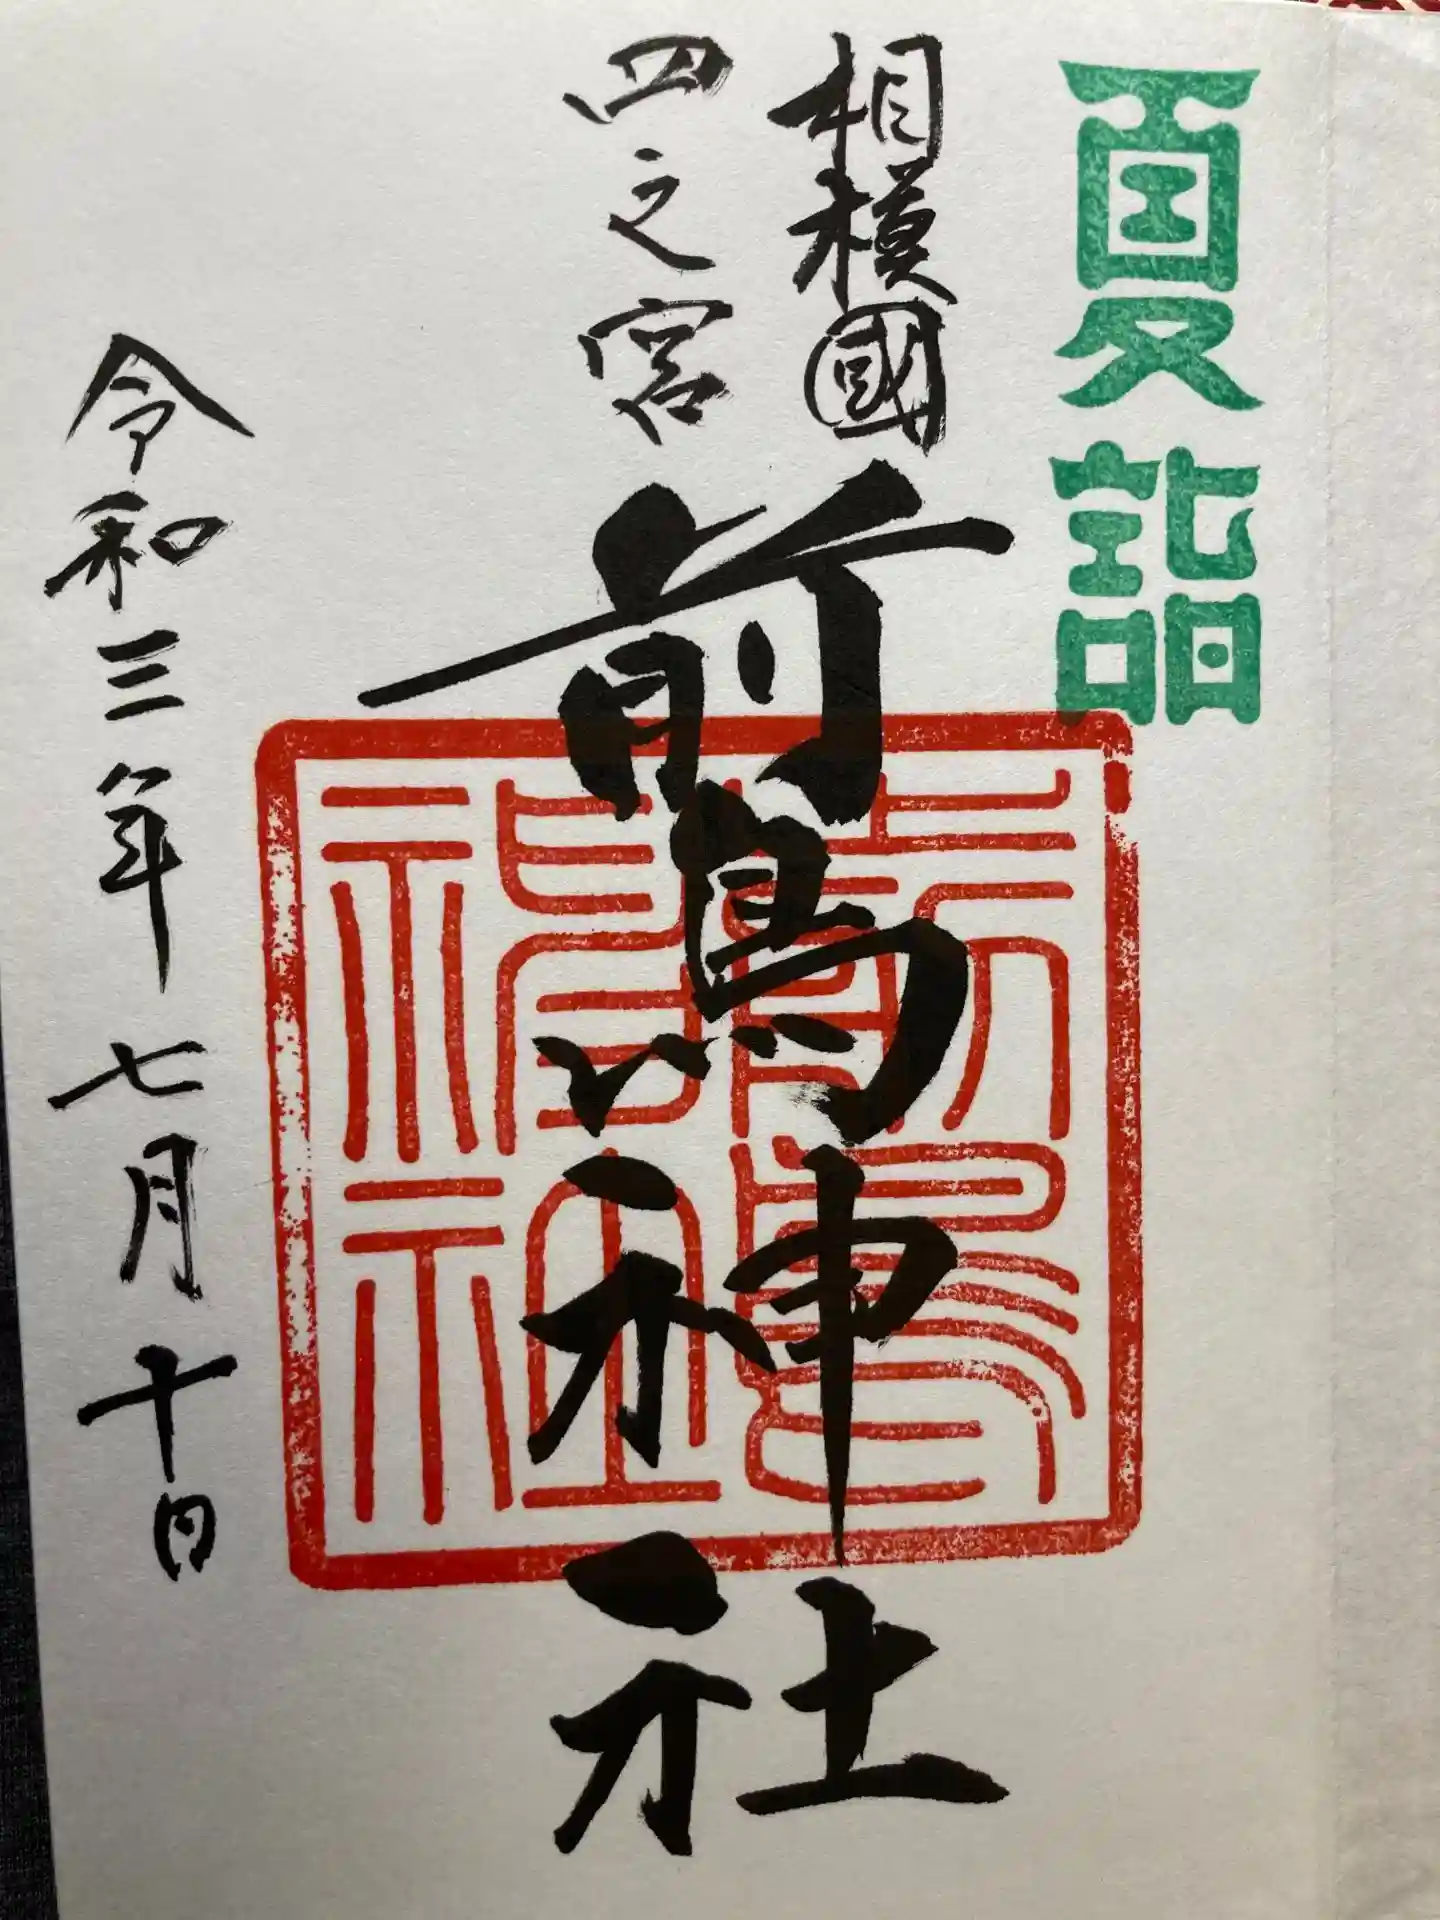 夏詣
相模國
四之宮
前鳥神社
令和三年七月十日
前鳥神社